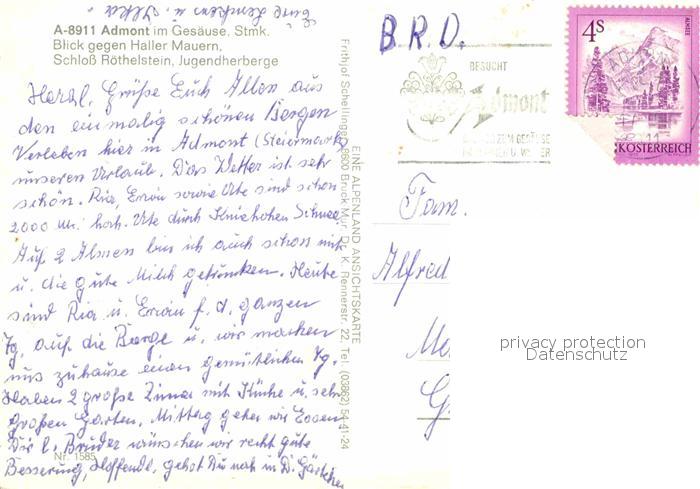 Eure
A-8911 Admont im Gesäuse, Stmk.
Blick gegen Haller Mauern,
Schloß Röthelstein, Jugendherberge
Herzl. Grüße Euch Allen aus
den einmalig schönen Bergen
Verleben hier in Admont (Steiermark)
unseren Urlaub. Das Wetter ist sehr
schön. Ria, Erwin sowie Ute sind schon
2000 m. hoch. Ute durch Kniehohen Schnee.
Auf 2 Almen bin ich auch schon mit
u. die gute Milch getrunken. Heute
sind Ria u. Erwin f. d. ganzen
Tg. auf die Berge u. wir machen
uns zuhause einen gemütlichen Tg.
Haben 2 große Zimmer mit Küche u. sehr
großen Garten. Mittag gehen wir Essen
Dir l. Bruder wünschen wir recht gute
Besserung, Hoffendl. gehst Du nach in D. Gärtchen
Nr. 1585
Frithjof Schellinger, 8600 Bruck/Mur, Dr. K. Rennerstr. 22, Tel. (03862) 54-41-24
EINE ALPENLAND ANSICHTSKARTE
B.R.D.
BESUCHT
Admont
ZUM GESÄUSE
4S
ALMSEE
ÖSTERREICH
Fam.
Alfred
G.
privacy protection
Datenschutz